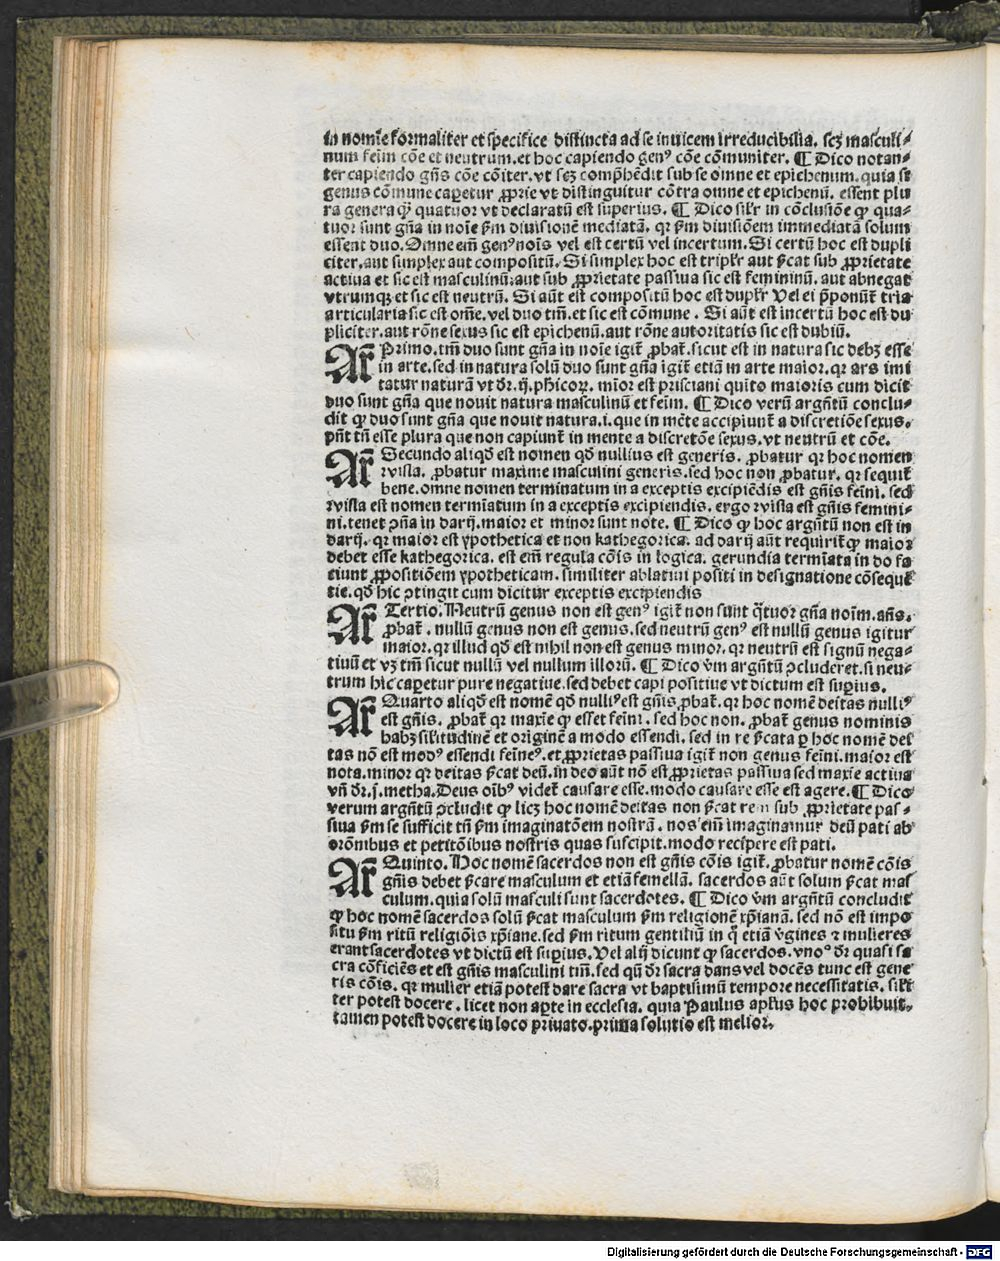 in nomīe formaliter et specifice distincta ad se inuicem irreducibilia. scꝫ masculi⸗
num femī cōe et neutrum. et hoc capiendo genꝰ cōe cōmuniter. ¶ Dico notan⸗
ter capiendo gn̄s cōe cōiter. vt scꝫ comp̄hēdit sub se omne et epichenum. quia si
genus cōmune caperetur ꝓprie vt distinguitur cōtra omne et epichenū. essent plu
ra genera qꝫ quatuor vt declaratū est superius. ¶ Dico silr̄ in cōclusiōe ꝙ qua⸗
tuor sunt gn̄a in noīe ẜm diuisionē mediatā. qr ẜm diuisiōem immediatā solum
essent duo. Omne em̄ genꝰ noīs vel est certū vel incertum. Si certū hoc est dupli
citer. aut simplex aut compositū. Si simplex hoc est triplr̄ aut ẜcat sub ꝓprietate
actiua et sic est masculinū: aut sub ꝓprietate passiua sic est femininū. aut abnegat
vtrumqꝫ et sic est neutrū. Si aūt est compositū hoc est duplr̄ Vel ei p̄ponūt̄ tria
articularia sic est om̄e. vel duo tm̄. et sic est cōmune. Si aūt est incertū hoc est du
pliciter. aut rōne sexus sic est epichenū. aut rōne autoritatis sic est dubiū.
Ar̄ Primo. tm̄ duo sunt gn̄a in noīe igit̄ ꝓbat̄. sicut est in natura sic debꝫ esse
in arte. sed in natura solū duo sunt gn̄a igit̄ etiā in arte maior. qr ars imi
tatur naturā vt dr̄. ij. phicoꝝ. mīor est prisciani quīto maioris cum dicit
duo sunt gn̄a que nouit natura masculinū et femī. ¶ Dico verū argn̄tū conclu⸗
dit ꝙ duo sunt gn̄a que nouit natura. i. que in mēte accipiunt̄ a discretiōe sexus.
pn̄t tn̄ esse plura que non capiunt̄ in mente a discretōe sexus. vt neutrū et cōe.
Ar̄ Secundo aliqd̄ est nomen qd̄ nullius est generis. ꝓbatur qr hoc nomen
rvista. ꝓbatur maxime masculini generis. sed hoc non ꝓbatur. qr sequit̄
bene. omne nomen terminatum in a exceptis excipiēdis est gn̄is femī. sed
rvista est nomen termīatum in a exceptis excipiendis. ergo rvista est gn̄is femini⸗
ni. tenet ꝯn̄a in darij. maior et minor sunt note. ¶ Dico ꝙ hoc argn̄tū non est in
darij. qr maior est ypothetica et non kathegorica. ad darij aūt requirit̄ ꝙ maior
debet esse kathegorica. est em̄ regula cōis in logica. gerundia termīata in do fa
tiunt ꝓpositiōem ypotheticam. similiter ablatiui positi in designatione cōsequē
tie. qd̄ hic ꝯtingit cum dicitur exceptis excipiendis
Ar̄ Tertio. Neutrū genus non est genꝰ igit̄ non sunt q̄tuor gn̄a noīm. añs.
ꝓbat̄. nullū genus non est genus. sed neutrū genꝰ est nullū genus igitur
maior. qr illud qd̄ est nihil non est genus minor. qr neutrū est signū nega⸗
tiuū et vꝫ tm̄ sicut nullū vel nullum illorū. ¶ Dico v̄m argn̄tū ꝯcluderet. si neu⸗
trum hic caperetur pure negatiue. sed debet capi positiue vt dictum est supius.
Ar̄ Quarto aliqd̄ est nomē qd̄ nulliꝰ est gn̄is ꝓbat̄. qr hoc nomē deitas nulliꝰ
est gn̄is. ꝓbat̄ qr maxīe ꝙ esset femī. sed hoc non. ꝓbat̄ genus nominis
habꝫ silitudinē et originē a modo essendi. sed in re ẜcata ꝑ hoc nomē dei
tas nō est modꝰ essendi feīneꝰ. et ꝓprietas passiua igit̄ non genus feīni. maior est
nota. minor qr deitas ẜcat deū. in deo aūt nō est ꝓprietas passiua sed maxīe actiua
vn̄ dr̄. j. metha. Deus oībꝰ videt̄ causare esse. modo causare esse est agere. ¶ Dico
verum argn̄tū ꝯcludit ꝙ licꝫ hoc nomē deitas non ẜcat rem sub ꝓprietate pas⸗
siua ẜm se sufficit tn̄ ẜm imaginatōem nostrā. nos em̄ imaginamur deū pati ab
orōnibus et petitōibus nostris quas suscipit. modo recipere est pati.
Ar̄ Quinto. Hoc nomē sacerdos non est gn̄is cōis igit̄. ꝓbatur nomē cōis
gn̄is debet ẜcare masculum et etiā femellā. sacerdos aūt solum ẜcat mas
culum. quia solū masculi sunt sacerdotes. ¶ Dico v̄m argn̄tū concludit
ꝙ hoc nomē sacerdos solū ẜcat masculum ẜm religionē xp̄ianā. sed nō est impo
situ ẜm ritū religiōis xp̄iane. sed ẜm ritum gentiliū in q̄ etiā v̄gines ⁊ mulieres
erant sacerdotes vt dictū est supius. Vel alij dicunt ꝙ sacerdos. vno° dr̄ quasi sa
cra cōficiēs et est gn̄is masculini tm̄. sed qn̄ dr̄ sacra dans vel docēs tunc est gene
ris cōis. qr mulier etiā potest dare sacra vt baptismū tempore necessitatis. silr̄
ter potest docere. licet non apte in ecclesia. quia Paulus apl̄us hoc prohibuit.
tamen potest docere in loco priuato. prima solutio est melior.
Digitalisierung gefördert durch die Deutsche Forschungsgemeinschaft - DFG